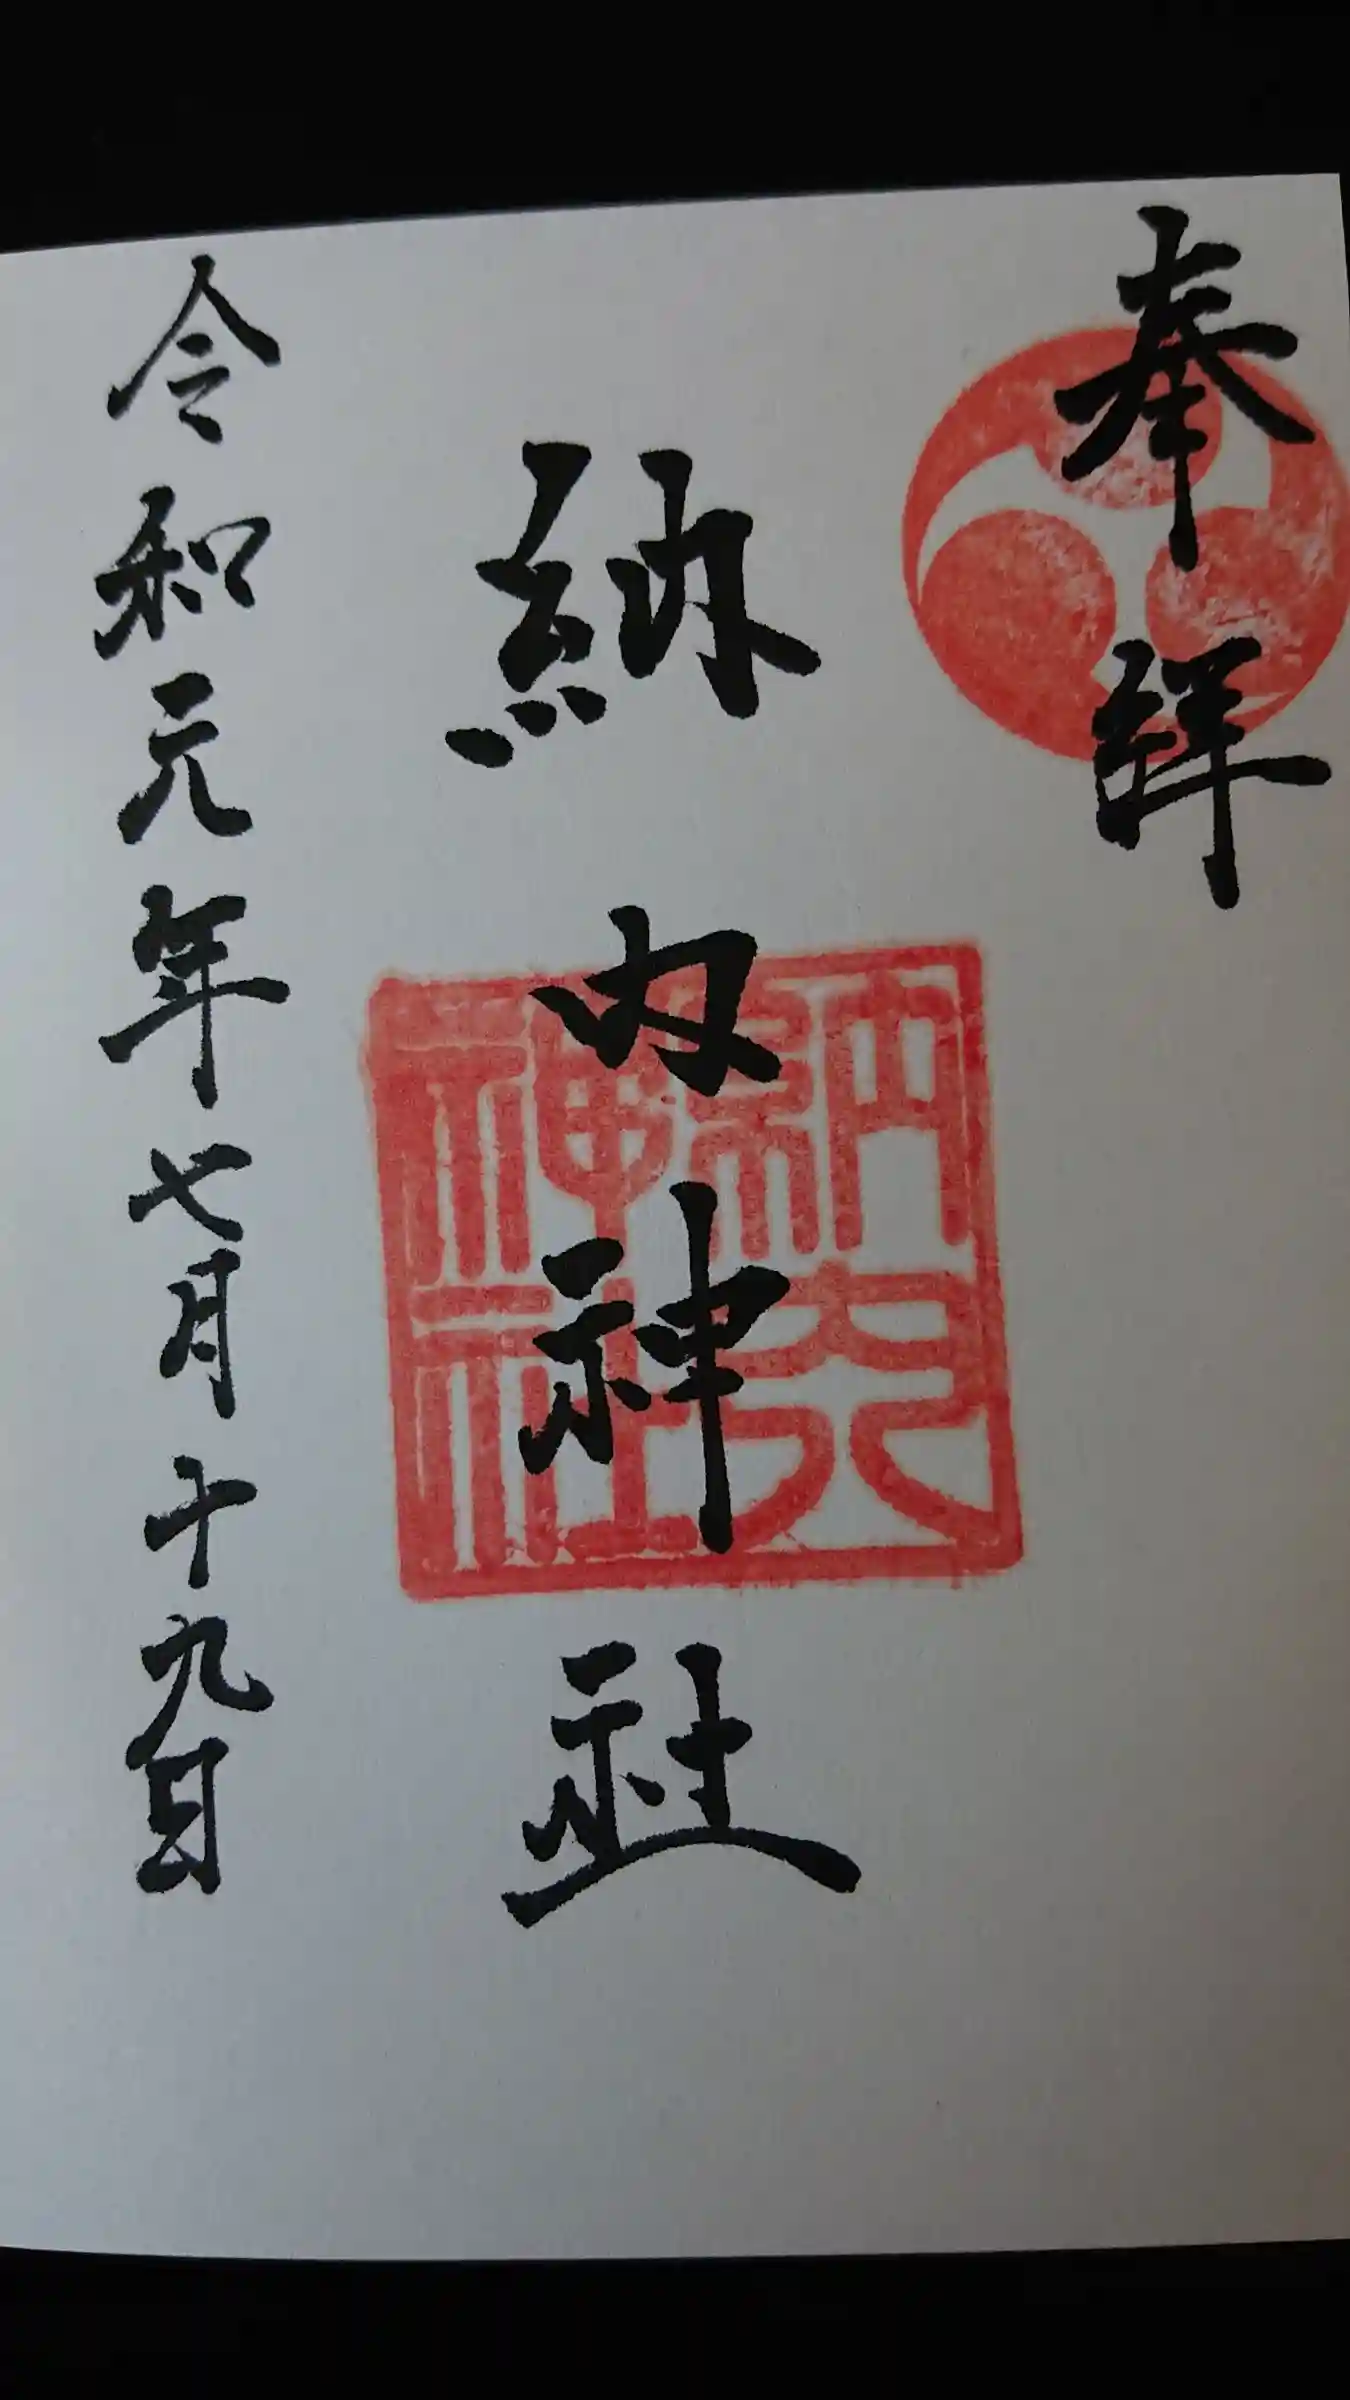 奉拝
納内神社
令和元年七月十九日